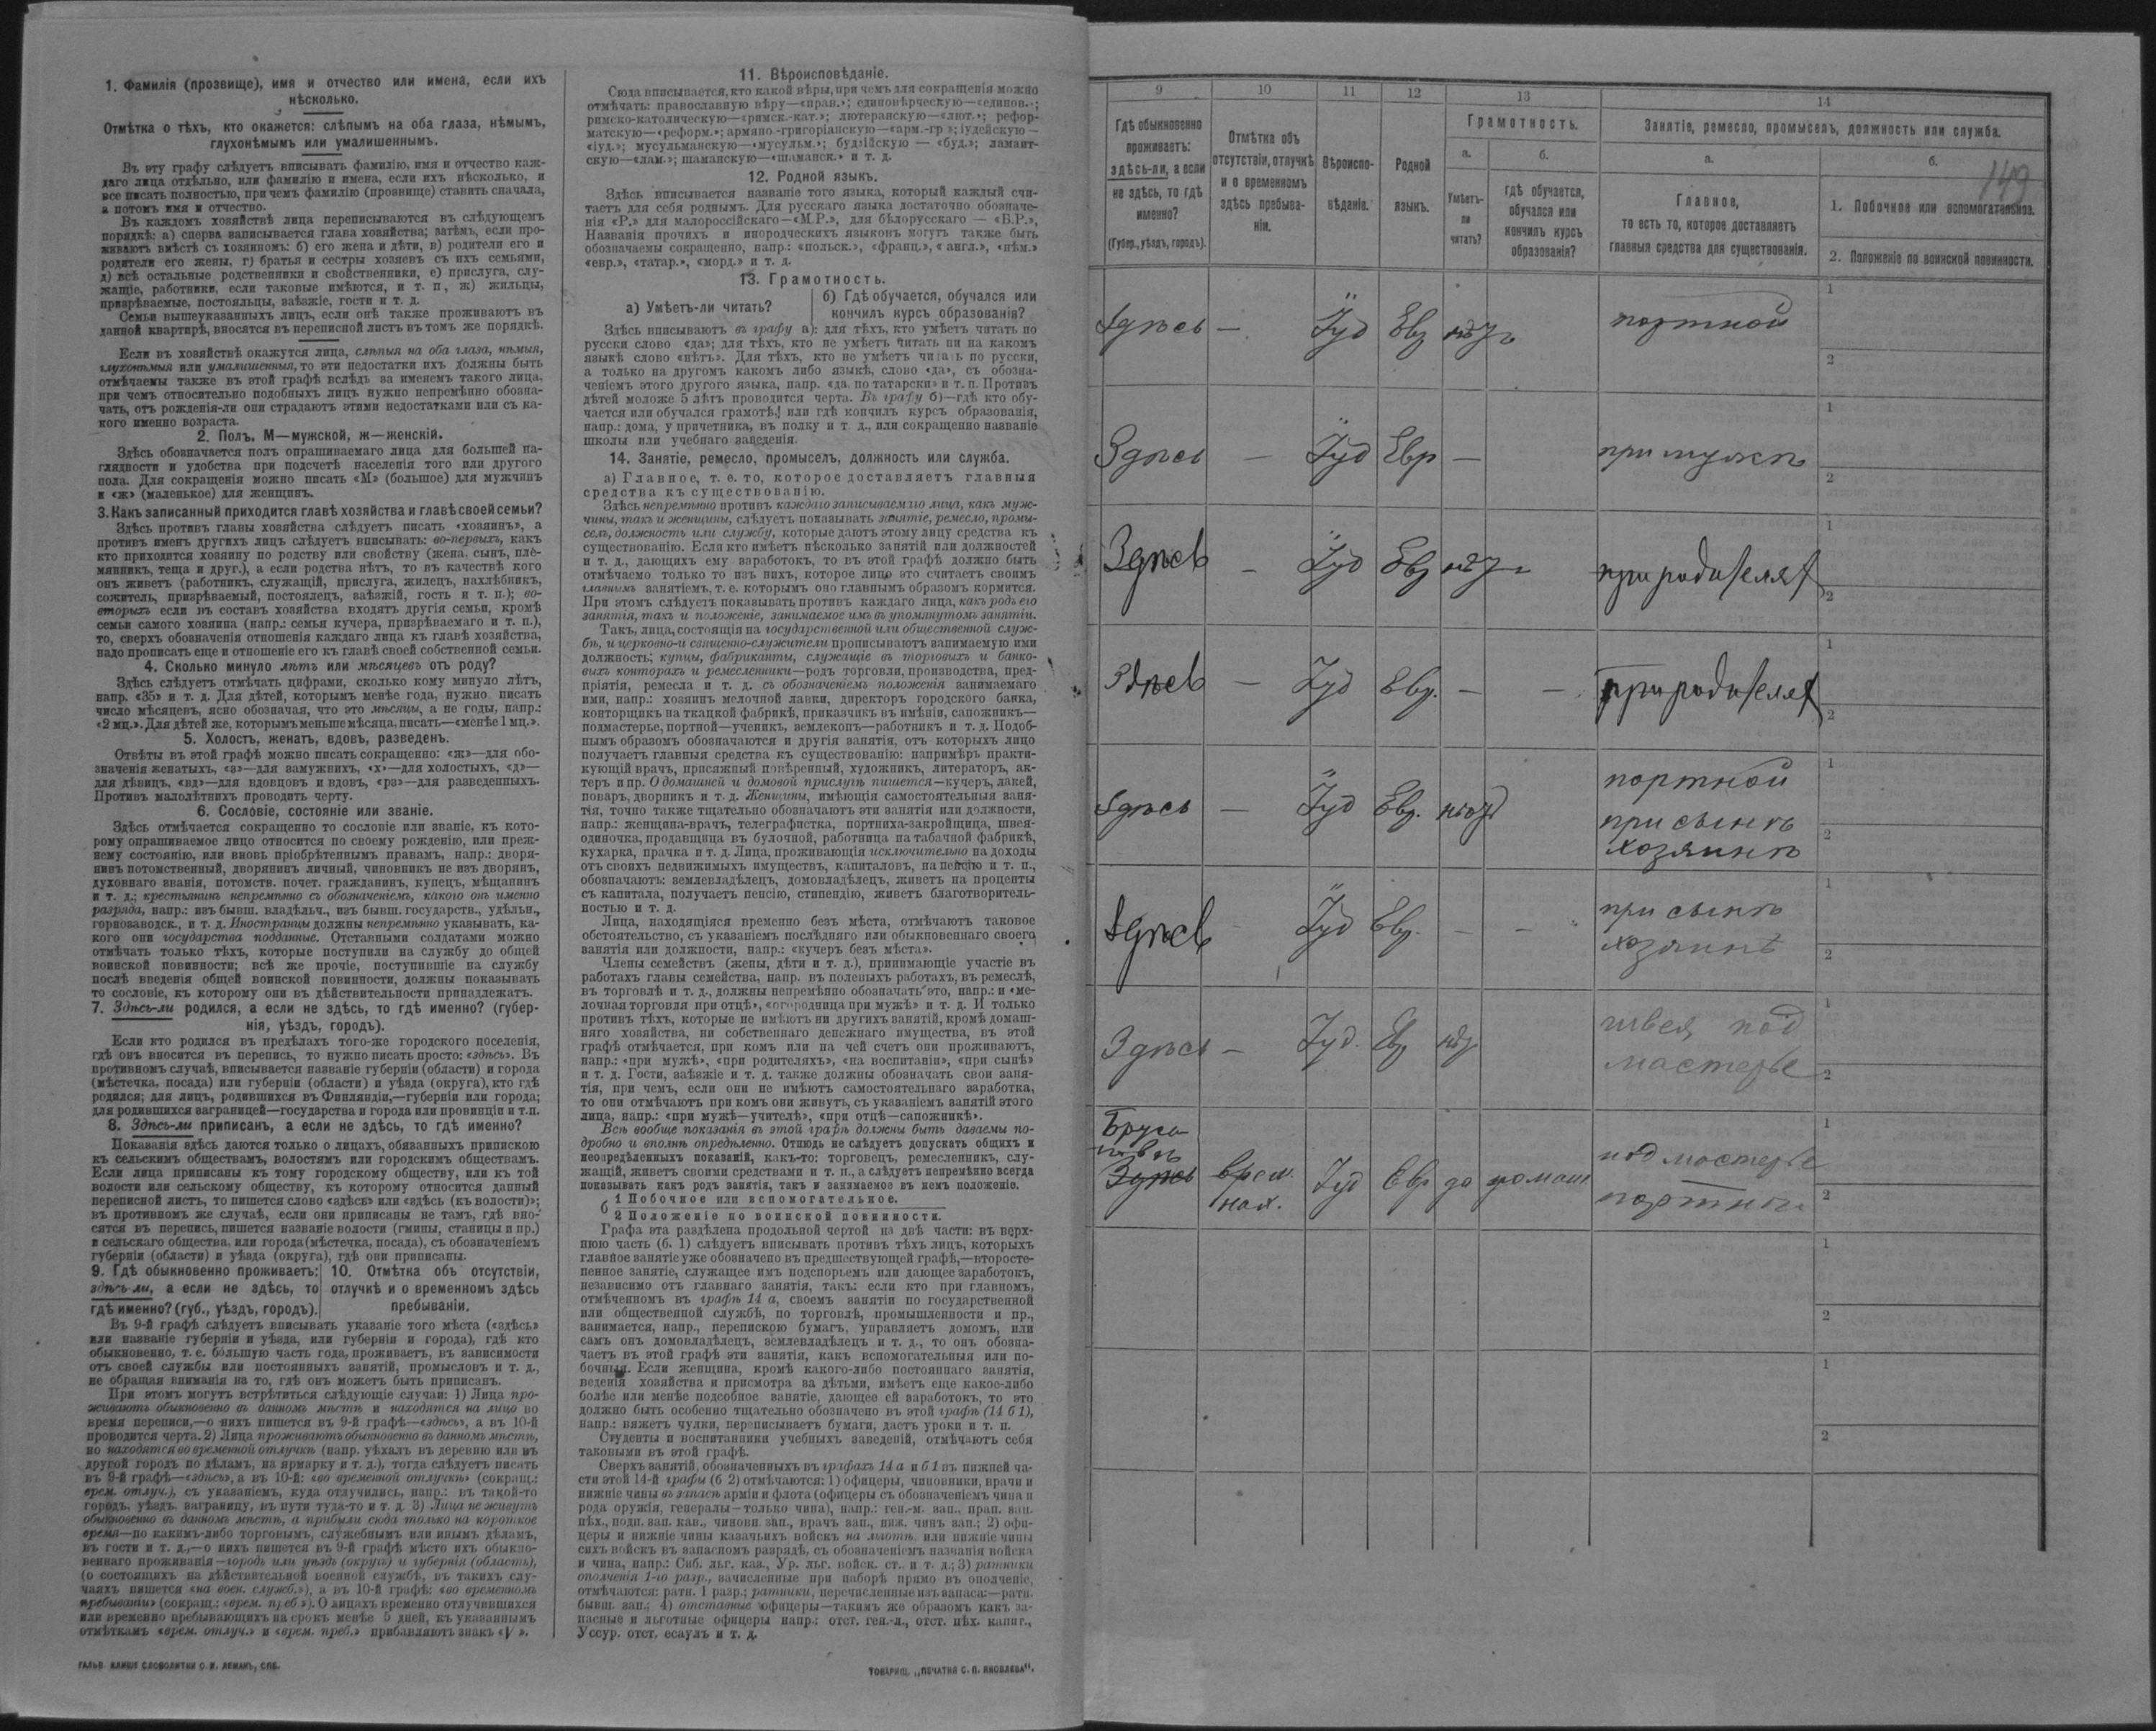 1. Фамилія (прозвище), имя и отчество или имена, если ихъ
нѣсколько.
Отмѣтка о тѣхъ, кто окажется: слѣпымъ на оба глаза, нѣмымъ,
глухонѣмымъ или умалишеннымъ.
Въ эту графу слѣдуетъ вписывать фамилію, имя и отчество каж-
даго лица отдѣльно, или фамилію и имена, если ихъ нѣсколько, и
все писать полностью, при чемъ фамилію (прозвище) ставить сначала,
а потомъ имя и отчество.
Въ каждомъ хозяйствѣ лица переписываются въ слѣдующемъ
порядкѣ: а) сперва записывается глава хозяйства; затѣмъ, если про-
живаютъ вмѣстѣ съ хозяиномъ: б) его жена и дѣти, в) родители его и
родители его жены, г) братья и сестры хозяевъ съ ихъ семьями,
д) всѣ остальные родственники и свойственники, е) прислуга, слу-
жащіе, работники, если таковые имѣются, и т. п, ж) жильцы,
призрѣваемые, постояльцы, заѣзжіе, гости и т. д.
Семьи вышеуказанныхъ лицъ, если онѣ также проживаютъ въ
данной квартирѣ, вносятся въ переписной листъ въ томъ же порядкѣ.
Если въ хозяйствѣ окажутся лица, слѣпыя на оба глаза, нѣмыя,
глухонѣмыя или умалишенныя, то эти недостатки ихъ должны быть
отмѣчаемы также въ этой графѣ вслѣдъ за именемъ такого лица,
при чемъ относительно подобныхъ лицъ нужно непремѣнно обозна-
чать, отъ рожденія-ли они страдаютъ этими недостатками или съ ка-
кого именно возраста.
2. Полъ, М—мужской, ж—женскій.
Здѣсь обозначается полъ опрашиваемаго лица для большей на-
глядности и удобства при подсчетѣ населенія того или другого
пола. Для сокращенія можно писать «М» (большое) для мужчинъ
и «ж» (маленькое) для женщинъ.
3. Какъ записанный приходится главѣ хозяйства и главѣ своей семьи?
Здѣсь противъ главы хозяйства слѣдуетъ писать «хозяинъ», а
противъ именъ другихъ лицъ слѣдуетъ вписывать: во-первыхъ, какъ
кто приходится хозяину по родству или свойству (жена, сынъ, пле-
мянникъ, теща и друг.), а если родства нѣтъ, то въ качествѣ кого
онъ живетъ (работникъ, служащій, прислуга, жилецъ, нахлѣбникъ,
сожитель, призрѣваемый, постоялецъ, заѣзжій, гость и т. п.); во-
вторыхъ если въ составъ хозяйства входятъ другія семьи, кромѣ
семьи самого хозяина (напр.: семья кучера, призрѣваемаго и т. п.),
то, сверхъ обозначенія отношенія каждаго лица къ главѣ хозяйства,
надо прописать еще и отношеніе его къ главѣ своей собственной семьи.
4. Сколько минуло лѣтъ или мѣсяцевъ отъ роду?
Здѣсь слѣдуетъ отмѣчать цифрами, сколько кому минуло лѣтъ,
напр. «35» и т. д. Для дѣтей, которымъ менѣе года, нужно писать
число мѣсяцевъ, ясно обозначая, что это мѣсяцы, а не годы, напр.:
«2 мц.». Для дѣтей же, которымъ меньше мѣсяца, писать—«менѣе 1 мц.».
5. Холостъ, женатъ, вдовъ, разведенъ.
Отвѣты въ этой графѣ можно писать сокращенно: «ж»—для обо-
значенія женатыхъ, «з»—для замужнихъ, «х»—для холостыхъ, «д»—
для дѣвицъ, «вд»—для вдовцовъ и вдовъ, «рз»—для разведенныхъ.
Противъ малолѣтнихъ проводить черту.
6. Сословіе, состояніе или званіе.
Здѣсь отмѣчается сокращенно то сословіе или званіе, къ кото-
рому опрашиваемое лицо относится по своему рожденію, или преж-
нему состоянію, или вновь пріобрѣтеннымъ правамъ, напр.: дворя-
нинъ потомственный, дворянинъ личный, чиновникъ не изъ дворянъ,
духовнаго званія, потомств. почет. гражданинъ, купецъ, мѣщанинъ
и т. д.; крестьянинъ непремѣнно съ обозначеніемъ, какого онъ именно
разряда, напр.: изъ бывш. владѣльч., изъ бывш. государств., удѣльн.,
горнозаводск., и т. д. Иностранцы должны непремѣнно указывать, ка-
кого они государства подданные. Отставными солдатами можно
отмѣчать только тѣхъ, которые поступили на службу до общей
воинской повинности; всѣ же прочіе, поступившіе на службу
послѣ введенія общей воинской повинности, должны показывать
то сословіе, къ которому они въ дѣйствительности принадлежатъ.
7. Здѣсь-ли родился, а если не здѣсь, то гдѣ именно? (губер-
нія, уѣздъ, городъ).
Если кто родился въ предѣлахъ того-же городского поселенія,
гдѣ онъ вносится въ перепись, то нужно писать просто: «здѣсь». Въ
противномъ случаѣ, вписывается названіе губерніи (области) и города
(мѣстечка, посада) или губерніи (области) и уѣзда (округа), кто гдѣ
родился; для лицъ, родившихся въ Финляндіи,—губерніи или города;
для родившихся заграницей—государства и города или провинціи и т.п.
8. Здѣсь-ли приписанъ, а если не здѣсь, то гдѣ именно?
Показанія здѣсь даются только о лицахъ, обязанныхъ припискою
къ сельскимъ обществамъ, волостямъ или городскимъ обществамъ.
Если лица приписаны къ тому городскому обществу, или къ той
волости или сельскому обществу, къ которому относится данный
переписной листъ, то пишется слово «здѣсь» или «здѣсь (къ волости)»;
въ противномъ же случаѣ, если они приписаны не тамъ, гдѣ вно-
сятся въ перепись, пишется названіе волости (гмины, станицы и пр.)
и сельскаго общества, или города (мѣстечка, посада), съ обозначеніемъ
губерніи (области) и уѣзда (округа), гдѣ они приписаны.
9. Гдѣ обыкновенно проживаетъ:
здѣсь-ли, а если не здѣсь, то
гдѣ именно? (губ., уѣздъ, городъ).
10. Отмѣтка объ отсутствіи,
отлучкѣ и о временномъ здѣсь
пребываніи.
Въ 9-й графѣ слѣдуетъ вписывать указаніе того мѣста («здѣсь»
или названіе губерніи и уѣзда, или губерніи и города), гдѣ кто
обыкновенно, т. е. бóльшую часть года, проживаетъ, въ зависимости
отъ своей службы или постоянныхъ занятій, промысловъ и т. д.,
не обращая вниманія на то, гдѣ онъ можетъ быть приписанъ.
При этомъ могутъ встрѣтиться слѣдующіе случаи: 1) Лица про-
живаютъ обыкновенно въ данномъ мѣстѣ и находятся на лицо во
время переписи,—о нихъ пишется въ 9-й графѣ—«здѣсь», а въ 10-й
проводится черта. 2) Лица проживаютъ обыкновенно въ данномъ мѣстѣ,
но находятся во временной отлучкѣ (напр. уѣхалъ въ деревню или въ
другой городъ по дѣламъ, на ярмарку и т. д.), тогда слѣдуетъ писать
въ 9-й графѣ—«здѣсь», а въ 10-й: «во временной отлучкѣ» (сокращ.:
врем. отлуч.), съ указаніемъ, куда отлучились, напр.: въ такой-то
городъ, уѣздъ, заграницу, въ пути туда-то и т. д. 3) Лица не живутъ
обыкновенно въ данномъ мѣстѣ, а прибыли сюда только на короткое
время—по какимъ-либо торговымъ, служебнымъ или инымъ дѣламъ,
въ гости и т. д.,—о нихъ пишется въ 9-й графѣ мѣсто ихъ обыкно-
веннаго проживанія—городъ или уѣздъ (округъ) и губернія (область),
(о состоящихъ на дѣйствительной военной службѣ, въ такихъ слу-
чаяхъ пишется «на воен. служб.»), а въ 10-й графѣ: «во временномъ
пребываніи» (сокращ.: «врем. преб.»). О лицахъ временно отлучившихся
или временно пребывающихъ на срокъ менѣе 5 дней, къ указаннымъ
отмѣткамъ «врем. отлуч.» и «врем. преб.» прибавляютъ знакъ «V».
ГАЛЬВ. КЛИШЕ СЛОВОЛИТНИ О. И. ЛЕМАНЪ, СПБ.
11. Вѣроисповѣданіе.
Сюда вписывается, кто какой вѣры, при чемъ для сокращенія можно
отмѣчать: православную вѣру—«прав.»; единовѣрческую—«единов.»;
римско-католическую—«римск.-кат.»; лютеранскую—«лют.»; рефор-
матскую—«реформ.»; армяно-григоріанскую—«арм.-гр»; іудейскую—
«іуд.»; мусульманскую—«мусульм.»; буддійскую—«буд.»; ламаит-
скую—«лам.»; шаманскую—«шаманск.» и т. д.
12. Родной языкъ.
Здѣсь вписывается названіе того языка, который каждый счи-
таетъ для себя роднымъ. Для русскаго языка достаточно обозначе-
нія «Р.» для малороссійскаго—«М.Р.», для бѣлорусскаго — «Б.Р.»,
Названія прочихъ и инородческихъ языковъ могутъ также быть
обозначаемы сокращенно, напр.: «польск.», «франц.», «англ.», «нѣм.»
«евр.», «татар.», «морд.» и т. д.
13. Грамотность.
а) Умѣетъ-ли читать?
б) Гдѣ обучается, обучался или
кончилъ курсъ образованія?
Здѣсь вписываютъ въ графу а): для тѣхъ, кто умѣетъ читать по
русски слово «да»; для тѣхъ, кто не умѣетъ читать ни на какомъ
языкѣ слово «нѣтъ». Для тѣхъ, кто не умѣетъ читать по русски,
а только на другомъ какомъ либо языкѣ, слово «да», съ обозна-
ченіемъ этого другого языка, напр. «да по татарски» и т. п. Противъ
дѣтей моложе 5 лѣтъ проводится черта. Въ графу б)—гдѣ кто обу-
чается или обучался грамотѣ, или гдѣ кончилъ курсъ образованія,
напр.: дома, у причетника, въ полку и т. д., или сокращенно названіе
школы или учебнаго заведенія.
14. Занятіе, ремесло, промыселъ, должность или служба.
а) Главное, т. е. то, которое доставляетъ главныя
средства къ существованію.
Здѣсь непремѣнно противъ каждаго записываемаго лица, какъ муж-
чины, такъ и женщины, слѣдуетъ показывать занятіе, ремесло, промы-
селъ, должность или службу, которые даютъ этому лицу средства къ
существованію. Если кто имѣетъ нѣсколько занятій или должностей
и т. д., дающихъ ему заработокъ, то въ этой графѣ должно быть
отмѣчаемо только то изъ нихъ, которое лицо это считаетъ своимъ
главнымъ занятіемъ, т. е. которымъ оно главнымъ образомъ кормится.
При этомъ слѣдуетъ показывать противъ каждаго лица, какъ родъ его
занятія, такъ и положеніе, занимаемое имъ въ упомянутомъ занятіи.
Такъ, лица, состоящія на государственной или общественной служ-
бѣ, и церковно-и священно-служители прописываютъ занимаемую ими
должность; купцы, фабриканты, служащіе въ торговыхъ и банко-
выхъ конторахъ и ремесленники—родъ торговли, производства, пред-
пріятія, ремесла и т. д. съ обозначеніемъ положенія занимаемаго
ими, напр.: хозяинъ мелочной лавки, директоръ городского банка,
конторщикъ на ткацкой фабрикѣ, приказчикъ въ имѣніи, сапожникъ—
подмастерье, портной—ученикъ, землекопъ—работникъ и т. д. Подоб-
нымъ образомъ обозначаются и другія занятія, отъ которыхъ лицо
получаетъ главныя средства къ существованію: напримѣръ практи-
кующій врачъ, присяжный повѣренный, художникъ, литераторъ, ак-
теръ и пр. О домашней и домовой прислугѣ пишется—кучеръ, лакей,
поваръ, дворникъ и т. д. Женщины, имѣющія самостоятельныя заня-
тія, точно также тщательно обозначаютъ эти занятія или должности,
напр.: женщина-врачъ, телеграфистка, портниха-закройщица, швея-
одиночка, продавщица въ булочной, работница на табачной фабрикѣ,
кухарка, прачка и т. д. Лица, проживающія исключительно на доходы
отъ своихъ недвижимыхъ имуществъ, капиталовъ, на пенсію и т. п.,
обозначаютъ: землевладѣлецъ, домовладѣлецъ, живетъ на проценты
съ капитала, получаетъ пенсію, стипендію, живетъ благотворитель-
ностью и т. д.
Лица, находящіяся временно безъ мѣста, отмѣчаютъ таковое
обстоятельство, съ указаніемъ послѣдняго или обыкновеннаго своего
занятія или должности, напр.: «кучеръ безъ мѣста».
Члены семействъ (жены, дѣти и т. д.), принимающіе участіе въ
работахъ главы семейства, напр. въ полевыхъ работахъ, въ ремеслѣ,
въ торговлѣ и т. д., должны непремѣнно обозначать это, напр.: и «ме-
лочная торговля при отцѣ», «огородница при мужѣ» и т. д. И только
противъ тѣхъ, которые не имѣютъ ни другихъ занятій, кромѣ домаш-
няго хозяйства, ни собственнаго денежнаго имущества, въ этой
графѣ отмѣчается, при комъ или на чей счетъ они проживаютъ,
напр.: «при мужѣ», «при родителяхъ», «на воспитаніи», «при сынѣ»
и т. д. Гости, заѣзжіе и т. д. также должны обозначать свои заня-
тія, при чемъ, если они не имѣютъ самостоятельнаго заработка,
то они отмѣчаютъ при комъ они живутъ, съ указаніемъ занятій этого
лица, напр.: «при мужѣ—учителѣ», «при отцѣ—сапожникѣ».
Всѣ вообще показанія въ этой графѣ должны быть даваемы по-
дробно и вполнѣ опредѣленно. Отнюдь не слѣдуетъ допускать общихъ и
неопредѣленныхъ показаній, какъ-то: торговецъ, ремесленникъ, слу-
жащій, живетъ своими средствами и т. п., а слѣдуетъ непремѣнно всегда
показывать какъ родъ занятія, такъ и занимаемое въ немъ положеніе.
б
1 Побочное или вспомогательное.
2 Положеніе по воинской повинности.
Графа эта раздѣлена продольной чертой на двѣ части: въ верх-
нюю часть (б. 1) слѣдуетъ вписывать противъ тѣхъ лицъ, которыхъ
главное занятіе уже обозначено въ предшествующей графѣ,—второсте-
пенное занятіе, служащее имъ подспорьемъ или дающее заработокъ,
независимо отъ главнаго занятія, такъ: если кто при главномъ,
отмѣченномъ въ графѣ 14 а, своемъ занятіи по государственной
или общественной службѣ, по торговлѣ, промышленности и пр.,
занимается, напр., перепискою бумагъ, управляетъ домомъ, или
самъ онъ домовладѣлецъ, землевладѣлецъ и т. д., то онъ обозна-
чаетъ въ этой графѣ эти занятія, какъ вспомогательныя или по-
бочныя. Если женщина, кромѣ какого-либо постояннаго занятія,
веденія хозяйства и присмотра за дѣтьми, имѣетъ еще какое-либо
болѣе или менѣе подсобное занятіе, дающее ей заработокъ, то это
должно быть особенно тщательно обозначено въ этой графѣ (14 б 1),
напр.: вяжетъ чулки, переписываетъ бумаги, даетъ уроки и т. п.
Студенты и воспитанники учебныхъ заведеній, отмѣчаютъ себя
таковыми въ этой графѣ.
Сверхъ занятій, обозначенныхъ въ графахъ 14 а и б 1 въ нижней ча-
сти этой 14-й графы (б 2) отмѣчаются: 1) офицеры, чиновники, врачи и
нижніе чины въ запасѣ арміи и флота (офицеры съ обозначеніемъ чина и
рода оружія, генералы—только чина), напр.: ген.-м. зап., прап. зап.
пѣх., подп. зап. кав., чиновн. зап., врачъ зап., ниж. чинъ зап.; 2) офи-
церы и нижніе чины казачьихъ войскъ на льготѣ или нижніе чины
сихъ войскъ въ запасномъ разрядѣ, съ обозначеніемъ названія войска
и чина, напр.: Сиб. льг. каз., Ур. льг. войск. ст.. и т. д.; 3) ратники
ополченія 1-го разр., зачисленные при наборѣ прямо въ ополченіе,
отмѣчаются: ратн. 1 разр.; ратники, перечисленные изъ запаса:—ратн.
бывш. зап.; 4) отставные офицеры—такимъ же образомъ какъ за-
пасные и льготные офицеры напр.: отст. ген.-л., отст. пѣх. капит.,
Уссур. отст. есаулъ и т. д.
ТОВАРИЩ. „ПЕЧАТНЯ С. П. ЯКОВЛЕВА“.
9 10 11 12 13 14
Гдѣ обыкновенно
проживаетъ:
здѣсь-ли, а если
не здѣсь, то гдѣ
именно?
(Губер., уѣздъ, городъ).
Отмѣтка объ
отсутствіи, отлучкѣ
и о временномъ
здѣсь пребыва-
ніи.
Вѣроиспо-
вѣданіе.
Родной
языкъ.
Грамотность.
а.
Умѣетъ-
ли
читать?
б.
гдѣ обучается,
обучался или
кончилъ курсъ
образованія?
Занятіе, ремесло, промыселъ, должность или служба.
а.
Главное,
то есть то, которое доставляетъ
главныя средства для существованія.
б.
149
1. Побочное или вспомогательное.
2. Положеніе по воинской повинности.
Здѣсь — Іуд Евр нѣтъ портной
1
2
Здѣсь — Іуд Евр — при мужѣ
1
2
Здѣсь — Іуд Евр нѣтъ при родителях
1
2
Здѣсь — Іуд Евр. — — при родителях
1
2
Здѣсь — Іуд Евр. нѣтъ портной
при сынѣ
хозяинѣ
1
2
Здѣсь - Іуд Евр. — — при сынѣ
хозяинѣ
1
2
Здѣсь — Іуд. Евр нѣт швея под
мастерье
1
2
Здѣсь врем. Іуд Евр да домаш подмастерье
нах. портной
1
2
1
2
1
2